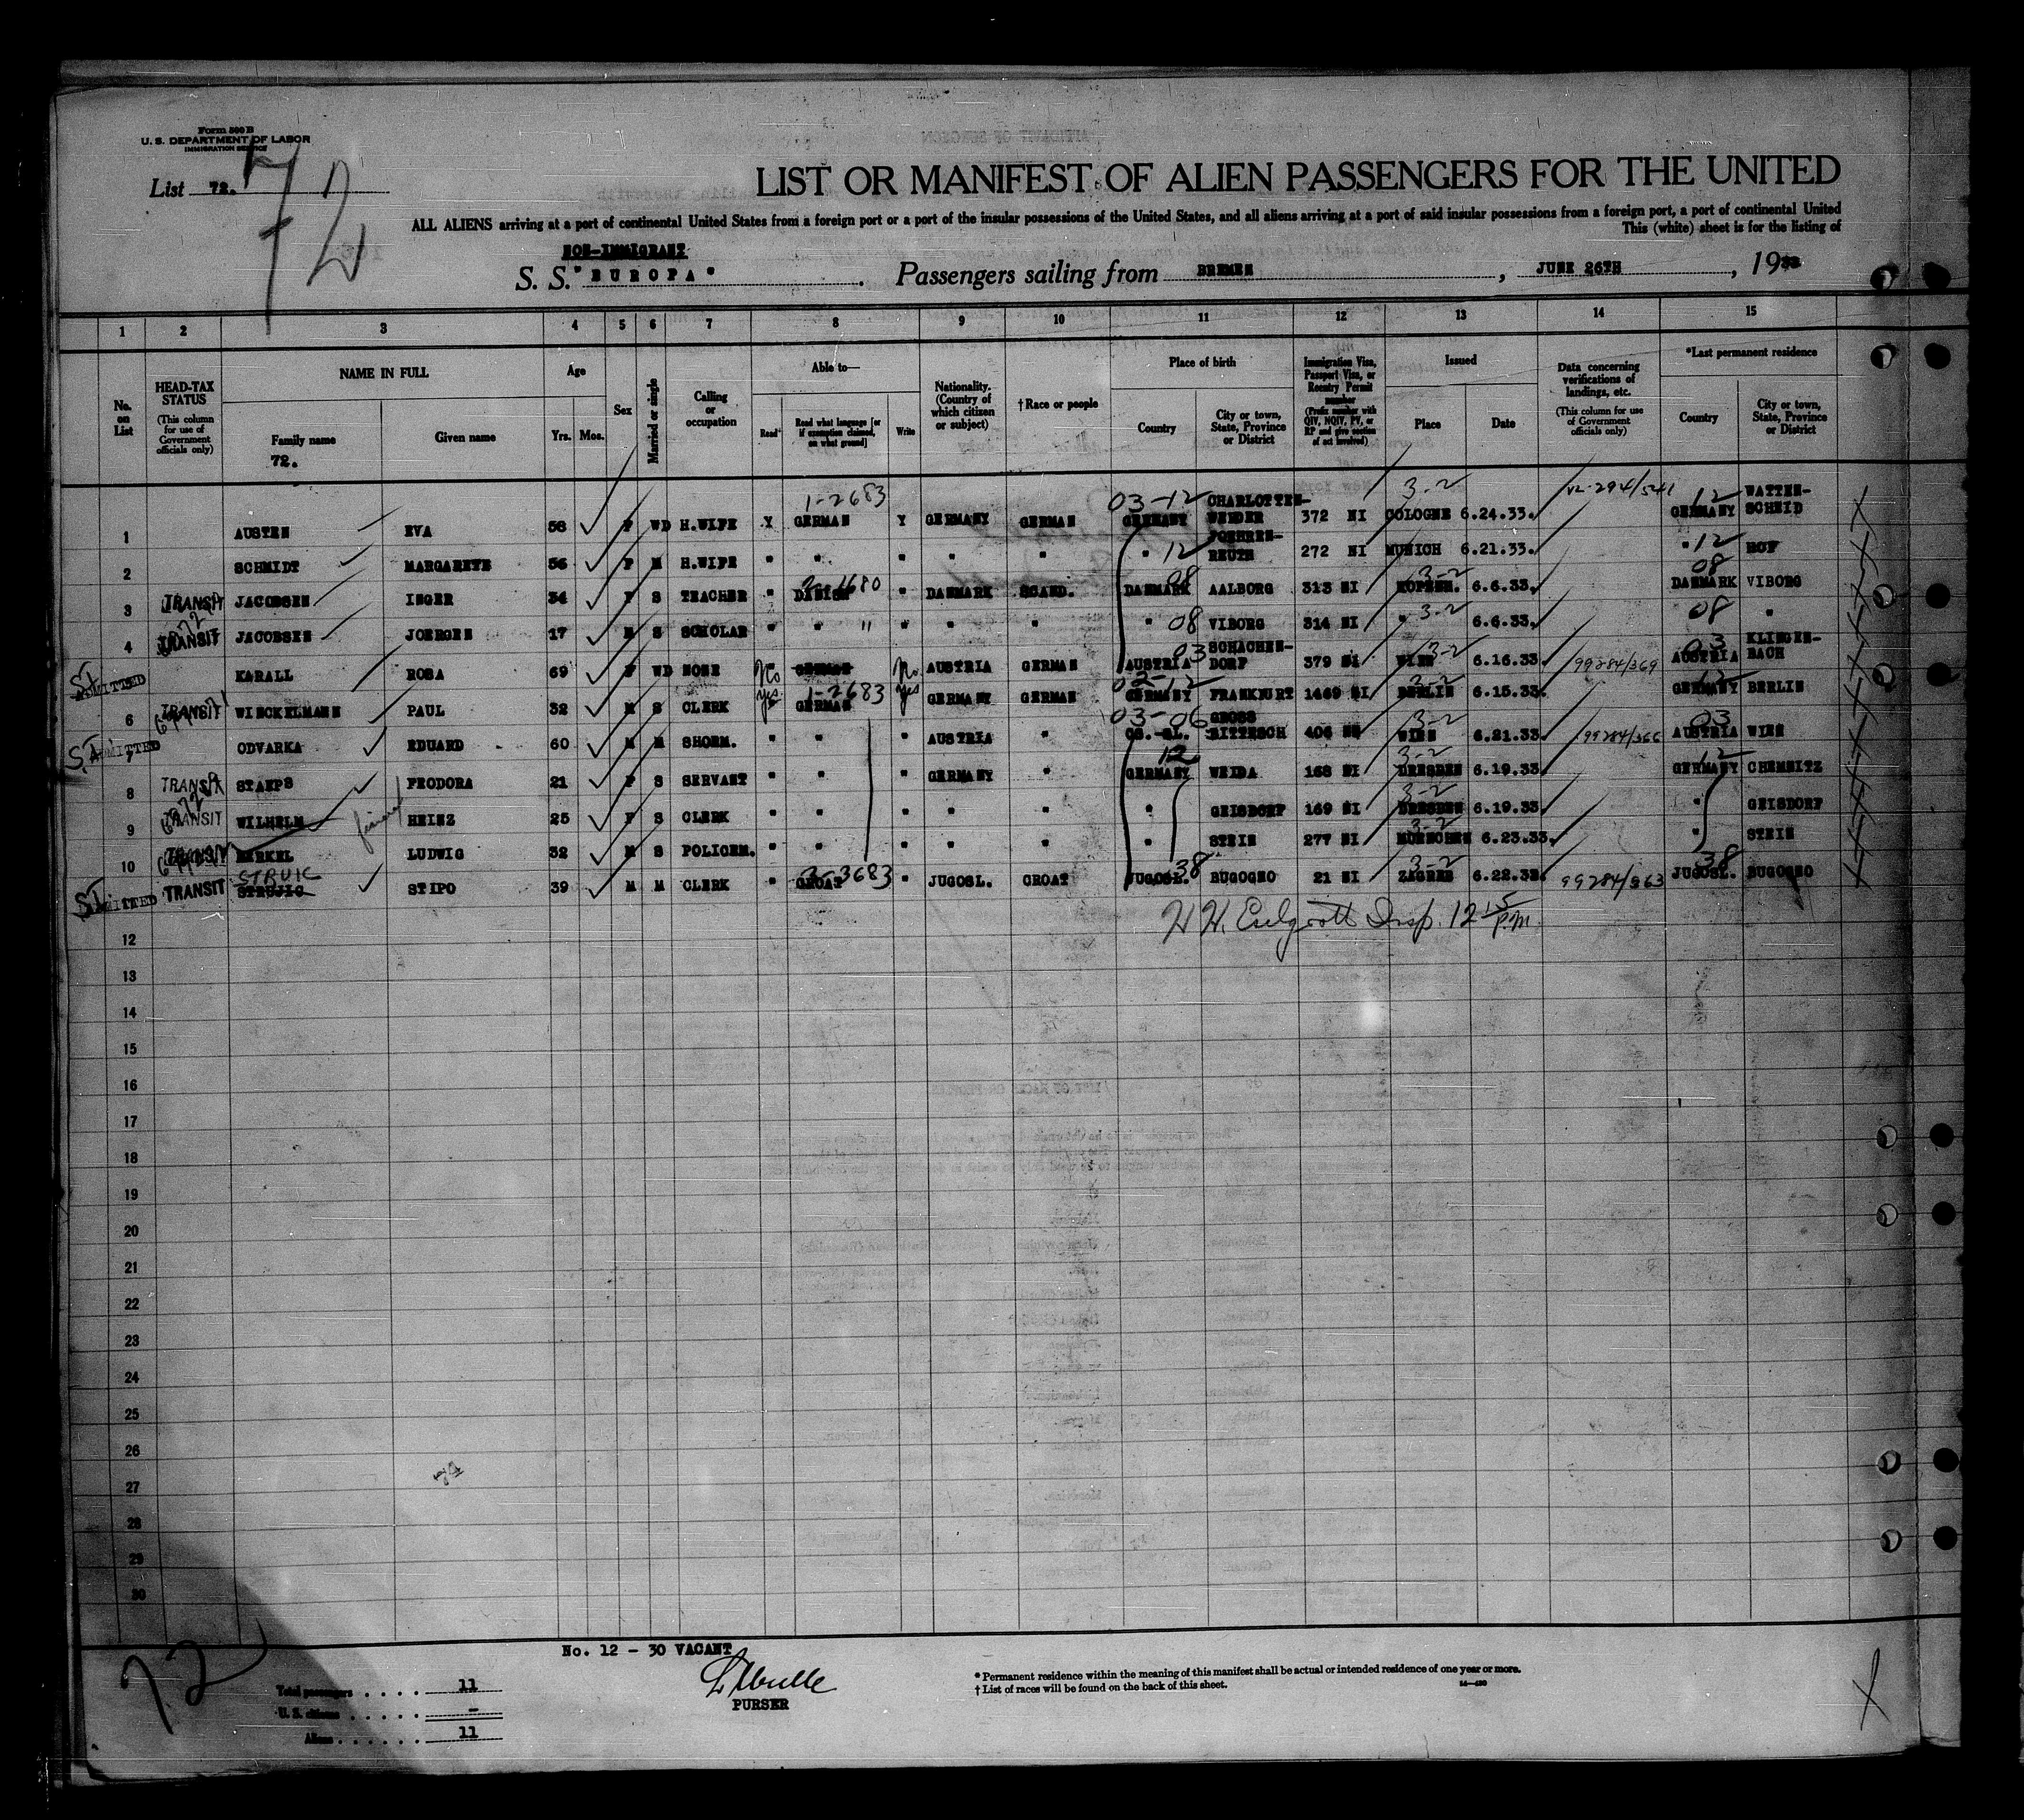 Form 500 B
U. S. DEPARTMENT OF LABOR
IMMIGRATION SERVICE
List 72.
72
LIST OR MANIFEST OF ALIEN PASSENGERS FOR THE UNITED
ALL ALIENS arriving at a port of continental United States from a foreign port or a port of the insular possessions of the United States, and all aliens arriving at a port of said insular possessions from a foreign port, a port of continental United
This (white) sheet is for the listing of
NON-IMMIGRANT
S. S. "EUROPA". Passengers sailing from BREMEN, JUNE 26TH, 1933
1 2 3 4 5 6 7 8 9 10 11 12 13 14 15
No. on List
HEAD-TAX STATUS (This column for use of Government officials only)
NAME IN FULL
Family name
72.
Given name
Age
Yrs. Mos.
Sex
Married or single
Calling or occupation
Able to—
Read* Read what language [or if exemption claimed, on what ground] Write
Nationality. (Country of which citizen or subject)
†Race or people
Place of birth
Country City or town, State, Province or District
Immigration Visa, Passport Visa, or Reentry Permit number (Prefix number with QIV, NQIV, PV, or RP and give section of act involved)
Issued
Place Date
Data concerning verifications of landings, etc. (This column for use of Government officials only)
*Last permanent residence
Country City or town, State, Province or District
1-2683 03-12 3-2 V2-294/541 12
1 AUSTEN EVA 58 F WD H.WIFE Y GERMAN Y GERMANY GERMAN GERMANY CHARLOTTEN-WEIDER 372 NI COLOGNE 6.24.33. GERMANY WATTEN-SCHEID
2 SCHMIDT MARGARETE 56 F M H.WIFE " " " " " " 12 REUTH 272 NI MUNICH 6.21.33. " 12 HOF
3 TRANSIT JACOBSEN INGER 34 F S TEACHER " DANISH 2-1680 " DANMARK SCAND. DANMARK 08 AALBORG 313 NI KOPENH. 3-2 6.6.33. DANMARK 08 VIBORG
4 TRANSIT JACOBSEN JOERGEN 17 M S SCHOLAR " " " " " " " 08 VIBORG 314 NI " 3-2 6.6.33. 08 "
5 ADMITTED KARALL ROSA 69 F WD NONE No GERMAN No AUSTRIA GERMAN AUSTRIA 03 SCHACHEN-DORF 379 NI WIEN 3-2 6.16.33 99284/369 AUSTRIA 03 KLINGEN-BACH
6 TRANSIT WINCKELMANN PAUL 32 M S CLERK yes GERMAN 1-2683 yes GERMANY GERMAN GERMANY 02-12 FRANKFURT 1469 NI BERLIN 3-2 6.15.33. GERMANY 12 BERLIN
7 ADMITTED ODVARKA EDUARD 60 M M SHOEM. " " " AUSTRIA " CS.-SL. 03-06 GROSS BITTESCH 406 NI WIEN 3-2 6.21.33. 99284/366 AUSTRIA 03 WIEN
8 TRANSIT STAEPS FEODORA 21 F S SERVANT " " " GERMANY " GERMANY 12 WEIDA 168 NI DRESDEN 3-2 6.19.33. GERMANY 12 CHEMNITZ
9 TRANSIT WILHELM HEINZ 25 F S CLERK " " " " " " GEISDORF 169 NI DRESDEN 3-2 6.19.33. " GEISDORF
10 TRANSIT MERKEL LUDWIG 32 M S POLICEM. " " " " " " STEIN 277 NI MUENCHEN 3-2 6.23.33. " STEIN
11 ADMITTED TRANSIT STRUJIC STRUIC STIPO 39 M M CLERK " CROAT 3-3683 " JUGOSL. CROAT JUGOSL. 38 BUGOGNO 21 NI ZAGREB 3-2 6.22.33. 99284/363 JUGOSL. 38 BUGOGNO
H H. Insp. 12 15 P.M.
12
13
14
15
16
17
18
19
20
21
22
23
24
25
26
27
28
29
30
74
No. 12 - 30 VACANT
72
PURSER
Total passengers . . . . 11
U. S. citizens . . . . . –
Aliens . . . . . . 11
* Permanent residence within the meaning of this manifest shall be actual or intended residence of one year or more.
† List of races will be found on the back of this sheet.
14—430